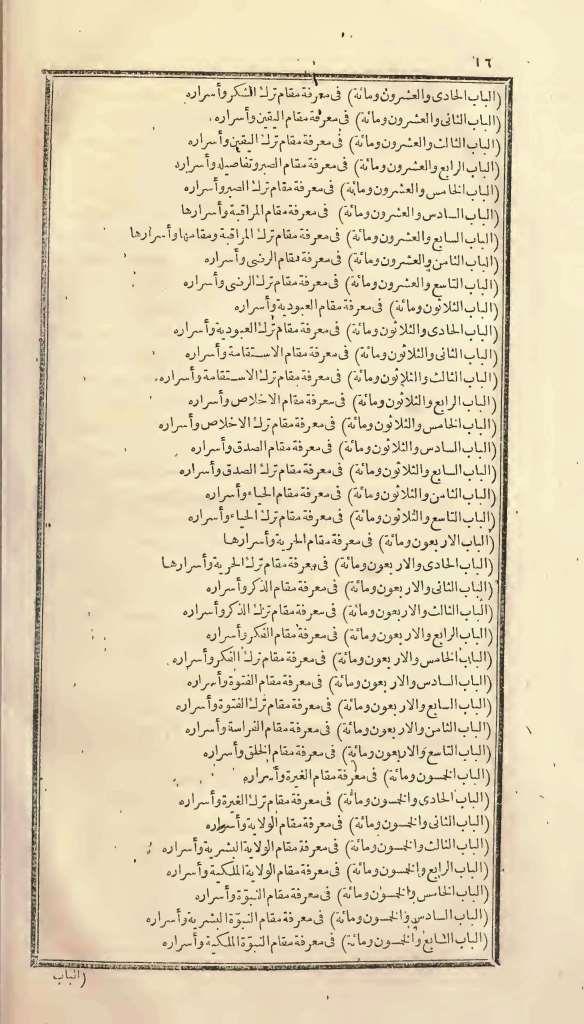 ١٦
(الباب الحادى والعشرون ومائة) فى معرفة مقام ترك الشكر وأسراره
(الباب الثانى والعشرون ومائة) فى معرفة مقام اليقين وأسراره
(الباب الثالث والعشرون ومائة) فى معرفة مقام ترك اليقين وأسراره
(الباب الرابع والعشرون ومائة) فى معرفة مقام الصبر وتفاصيله وأسراره
(الباب الخامس والعشرون ومائة) فى معرفة مقام ترك الصبر وأسراره
(الباب السادس والعشرون ومائة) فى معرفة مقام المراقبة وأسرارها
(الباب السابع والعشرون ومائة) فى معرفة مقام ترك المراقبة ومقامها وأسرارها
(الباب الثامن والعشرون ومائة) فى معرفة مقام الرضى وأسراره
(الباب التاسع والعشرون ومائة) فى معرفة مقام ترك الرضى وأسراره
(الباب الثلاثون ومائة) فى معرفة مقام العبودية وأسراره
(الباب الحادى والثلاثون ومائة) فى معرفة مقام ترك العبودية وأسراره
(الباب الثانى والثلاثون ومائة) فى معرفة مقام الاستقامة وأسراره
(الباب الثالث والثلاثون ومائة) فى معرفة مقام ترك الاستقامة وأسراره
(الباب الرابع والثلاثون ومائة) فى معرفة مقام الاخلاص وأسراره
(الباب الخامس والثلاثون ومائة) فى معرفة مقام ترك الاخلاص وأسراره
(الباب السادس والثلاثون ومائة) فى معرفة مقام الصدق وأسراره
(الباب السابع والثلاثون ومائة) فى معرفة مقام ترك الصدق وأسراره
(الباب الثامن والثلاثون ومائة) فى معرفة مقام الحياء وأسراره
(الباب التاسع والثلاثون ومائة) فى معرفة مقام ترك الحياء وأسراره
(الباب الاربعون ومائة) فى معرفة مقام الحرية وأسرارها
(الباب الحادى والاربعون ومائة) فى معرفة مقام ترك الحرية وأسرارها
(الباب الثانى والاربعون ومائة) فى معرفة مقام الذكر وأسراره
(الباب الثالث والاربعون ومائة) فى معرفة مقام ترك الذكر وأسراره
(الباب الرابع والاربعون ومائة) فى معرفة مقام الفكر وأسراره
(الباب الخامس والاربعون ومائة) فى معرفة مقام ترك الفكر وأسراره
(الباب السادس والاربعون ومائة) فى معرفة مقام الفتوة وأسراره
(الباب السابع والاربعون ومائة) فى معرفة مقام ترك الفتوة وأسراره
(الباب الثامن والاربعون ومائة) فى معرفة مقام الفراسة وأسراره
(الباب التاسع والاربعون ومائة) فى معرفة مقام الخلق وأسراره
(الباب الخمسون ومائة) فى معرفة مقام الغيرة وأسراره
(الباب الحادى والخمسون ومائة) فى معرفة مقام ترك الغيرة وأسراره
(الباب الثانى والخمسون ومائة) فى معرفة مقام الولاية وأسراره
(الباب الثالث والخمسون ومائة) فى معرفة مقام الولاية البشرية وأسراره
(الباب الرابع والخمسون ومائة) فى معرفة مقام الولاية الملكية وأسراره
(الباب الخامس والخمسون ومائة) فى معرفة مقام النبوّة وأسراره
(الباب السادس والخمسون ومائة) فى معرفة مقام النبوّة البشرية وأسراره
(الباب السابع والخمسون ومائة) فى معرفة مقام النبوّة الملكية وأسراره
(الباب